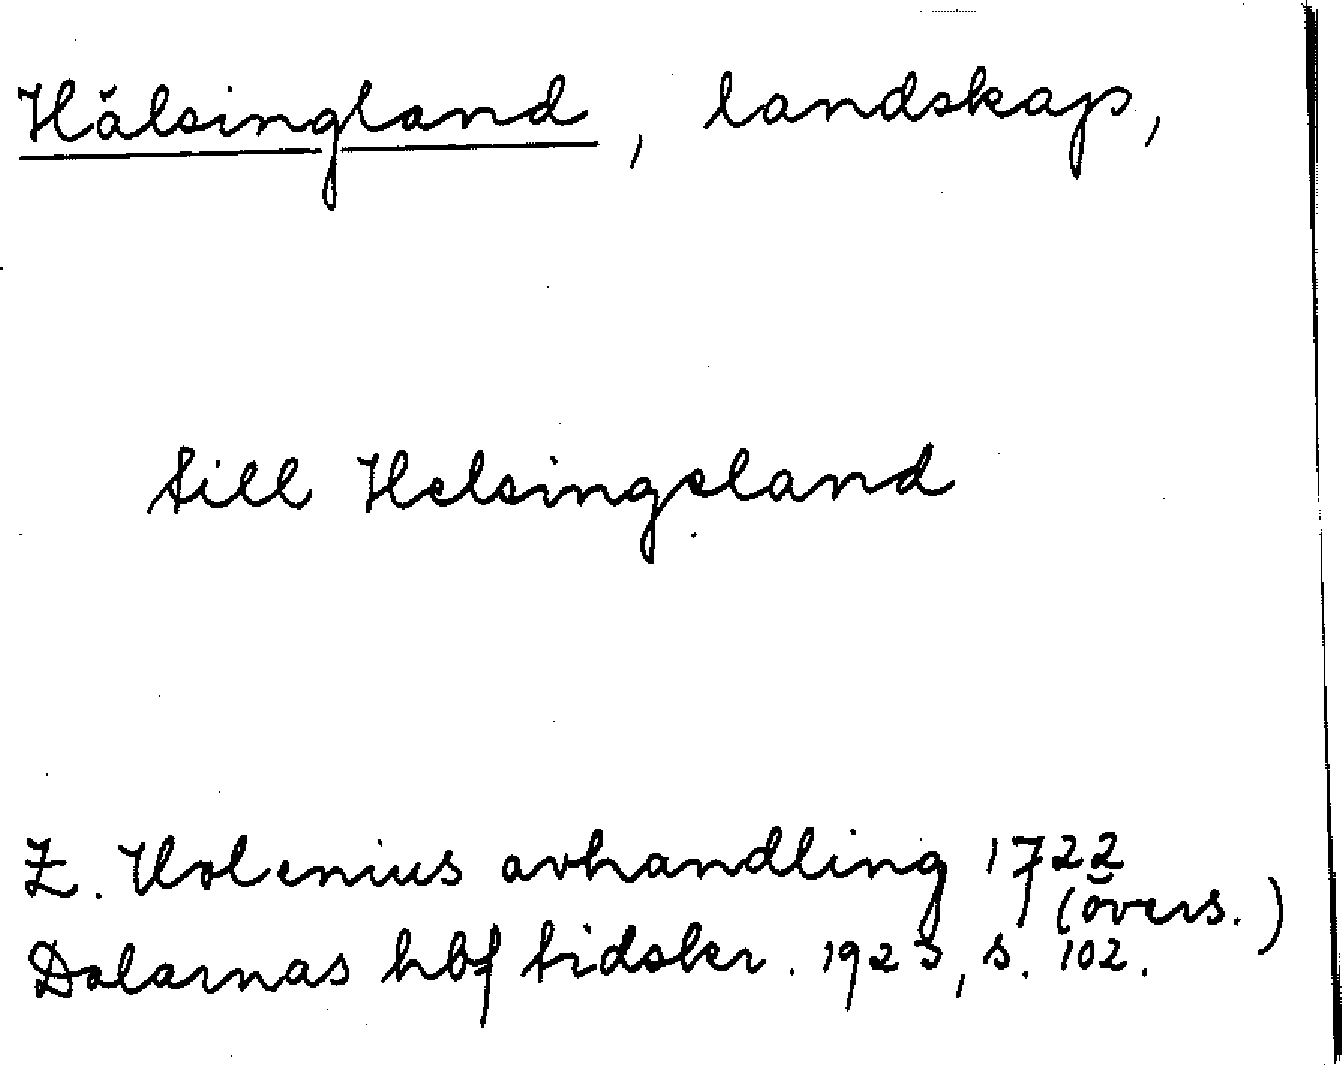 Hälsingland, landskap,
till Helsingeland
Z. Holenius avhandling 1722
(övers.)
Dalarnas hbf tidskr. 1923, s. 102.